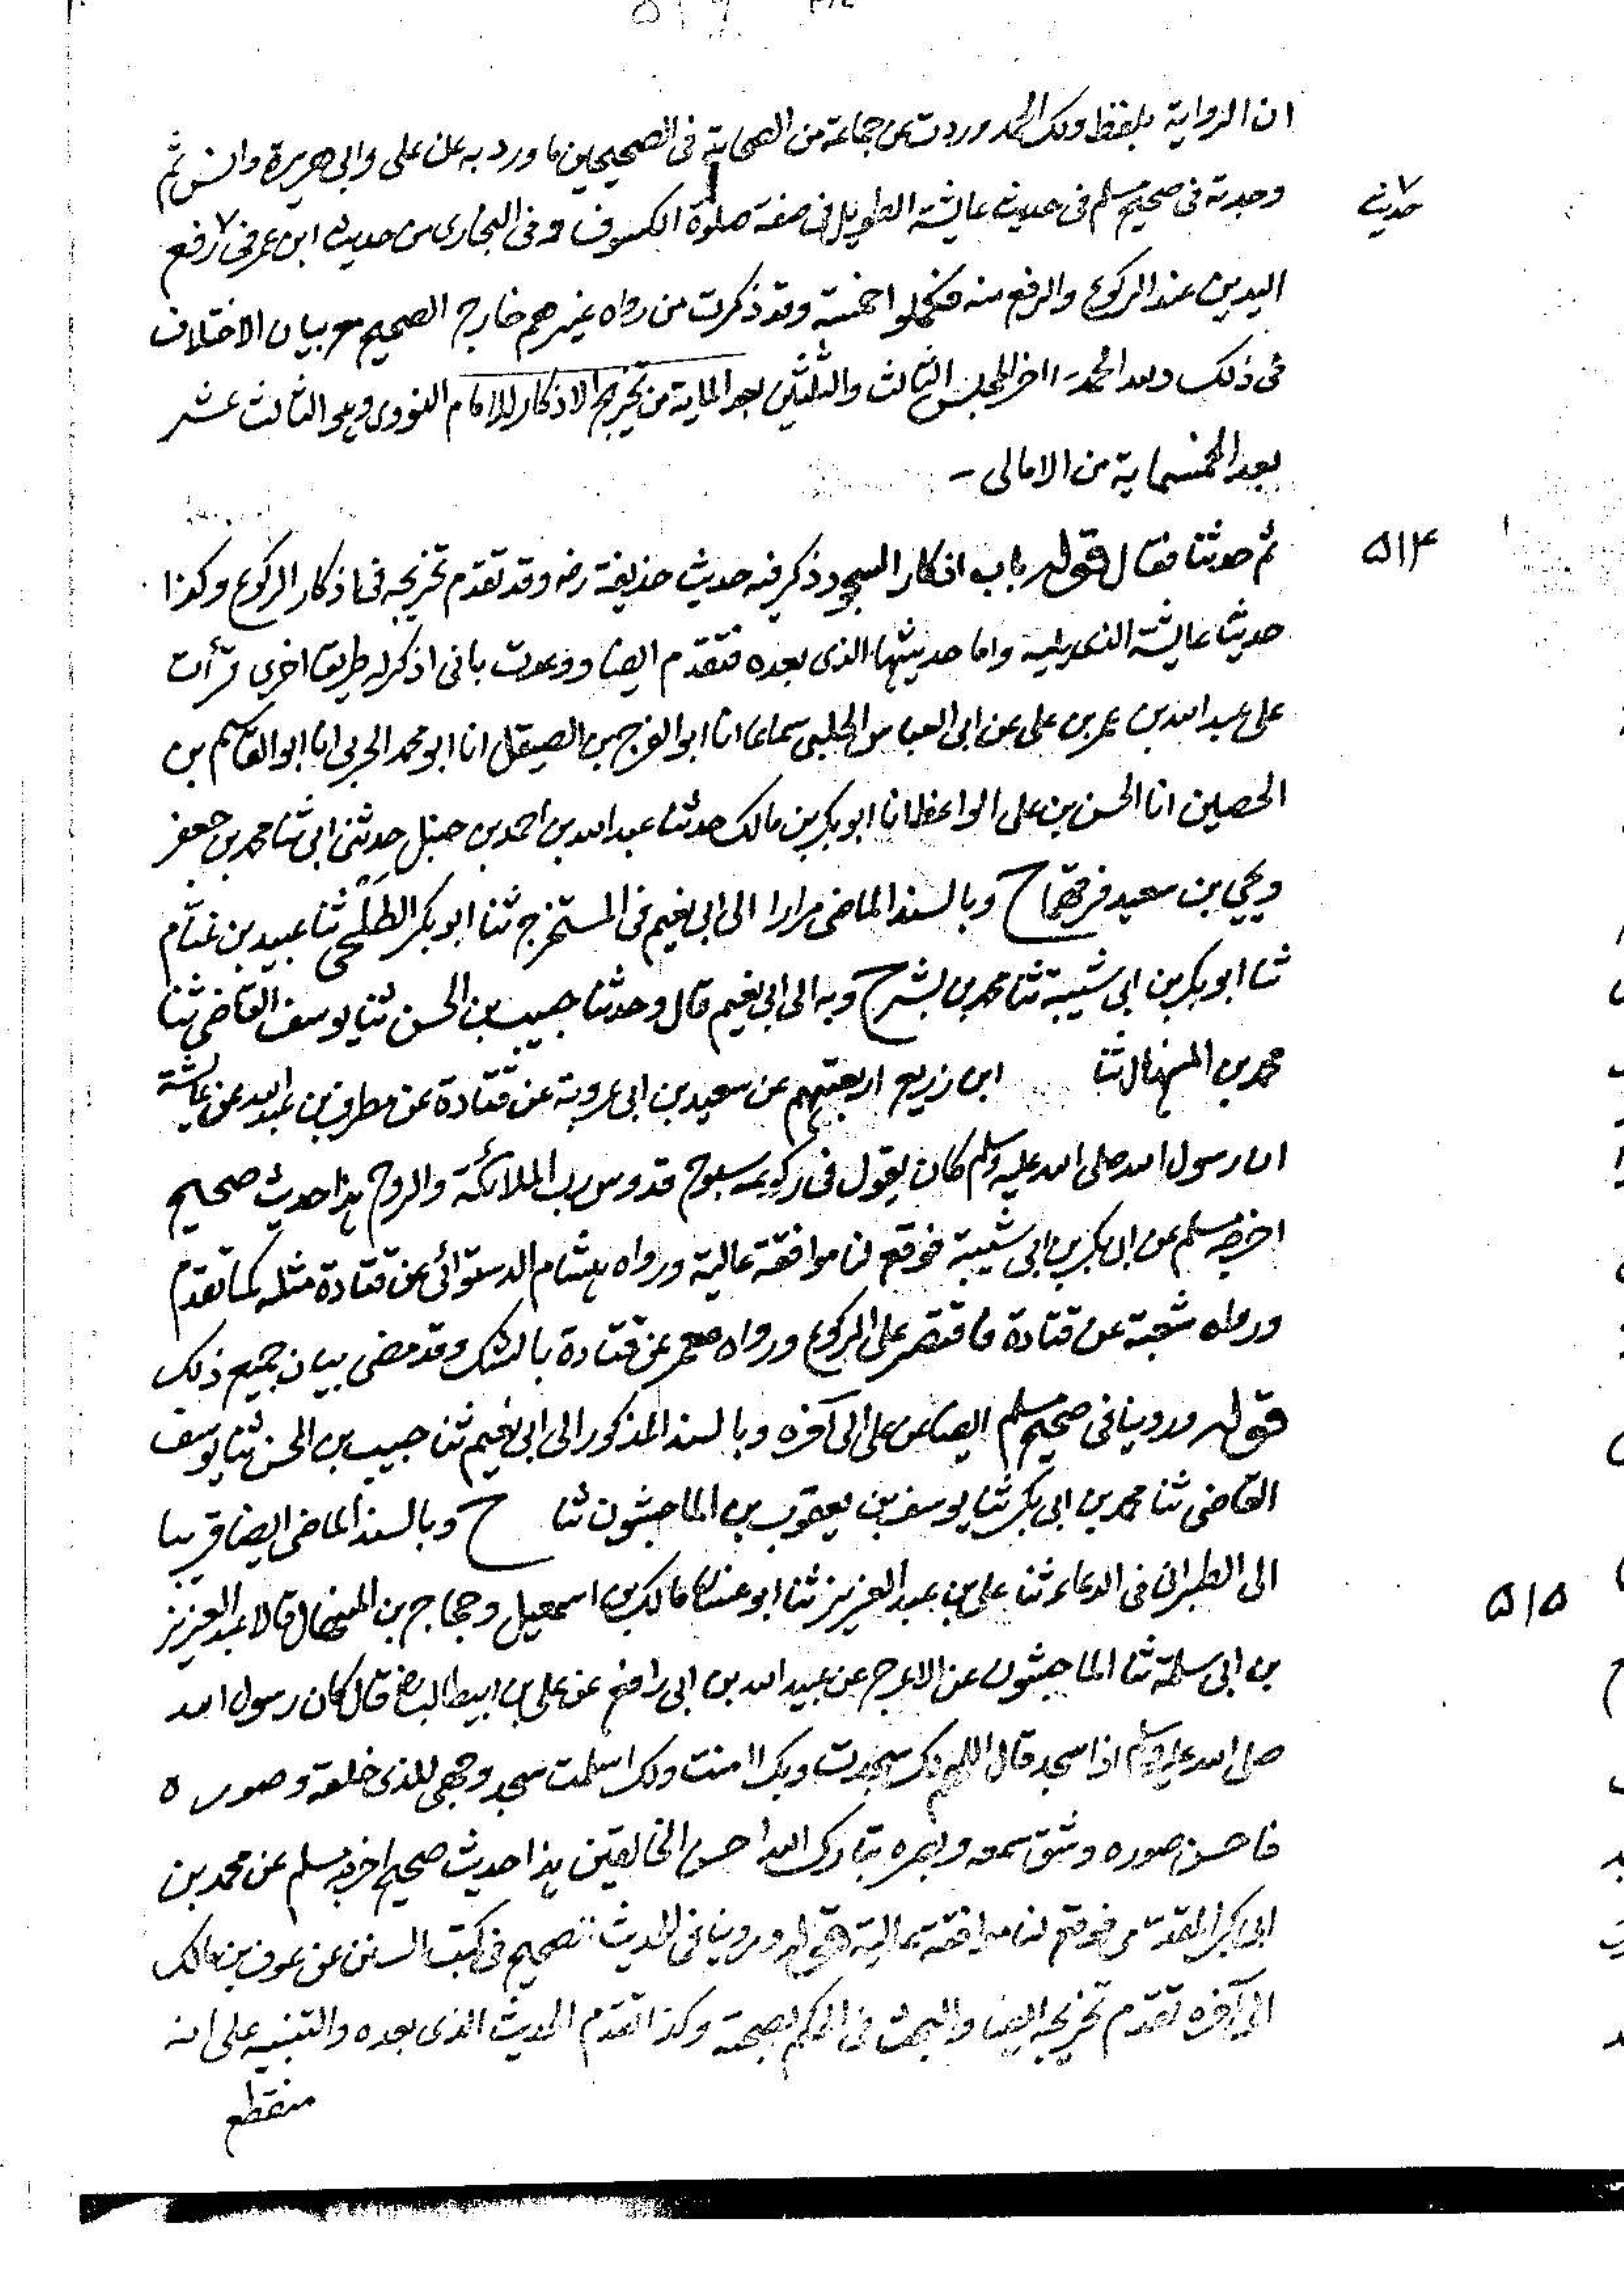 ان الرواية بلفظ ولك الحمد وردت عن جماعة من الصحابة فى الصحيحين ما ورد به عن على وابى هريرة وانس ثم
وجدته فى صحيح مسلم فى حديث عايشة الطويل فى صفة صلوة الكسوف وفى البخارى من حديث ابن عمر فى رفع
حديث
اليدين عند الركوع والرفع منه فكملوا خمسة وقد ذكرت من رواه غيرهم خارج الصحيح مع بيان الاختلاف
فى ذلك ولله الحمد - اخر المجلس الثالث والثلثين بعد الماية من تخريج الاذكار للامام النووى وهو الثالث عشر
بعد الخمسماية من الامالى -
ثم حدثنا فقال قوله باب اذكار السجود ذكر فيه حديث حذيفة رضه وقد تقدم تخريجه فى اذكار الركوع وكذا
۵۱۴
حديث عايشة الذى يليه واما حديثها الذى بعده فتقدم ايضا ووعدت بانى اذكر له طريقا اخرى قرأت
على عبد الله بن عمر بن على عن ابى العباس الحلبى سماعا انا ابو الفرج بن الصيقل انا ابو محمد الحربى انا ابو القاسم بن
الحصين انا الحسن بن على الواعظ انا ابو بكر بن مالك حدثنا عبد الله بن احمد بن حنبل حدثنى ابى ثنا محمد بن جعفر
ويحيى بن سعيد فرقهما ح وبالسند الماضى مرارا الى ابى نعيم فى المستخرج ثنا ابو بكر الطلحى ثنا عبيد بن غنام
ثنا ابو بكر بن ابى شيبة ثنا محمد بن بشر ح وبه الى ابى نعيم قال وحدثنا حبيب بن الحسن ثنا يوسف القاضى ثنا
محمد بن المنهال ثنا ابن زريع اربعتهم عن سعيد بن ابى عروبة عن قتادة عن مطرف بن عبد الله عن عائشة
ان رسول الله صلى الله عليه وسلم كان يقول فى ركوعه سبوح قدوس رب الملائكة والروح هذا حديث صحيح
اخرجه مسلم عن ابى بكر بن ابى شيبة فوقع لنا موافقة عالية ورواه هشام الدستوائى عن قتادة مثله كما تقدم
ورواه شعبة عن قتادة فاقتصر على الركوع ورواه معمر عن قتادة بالشك وقد مضى بيان جميع ذلك
قوله وروينا فى صحيح مسلم ايضا عن على الى آخره وبالسند المذكور الى ابى نعيم ثنا حبيب بن الحسن ثنا يوسف
القاضى ثنا محمد بن ابى بكر ثنا يوسف بن يعقوب بن الماجشون ثنا ح وبالسند الماضى ايضا قريبا
الى الطبرانى فى الدعاء ثنا على بن عبد العزيز ثنا ابو غسان مالك بن اسمعيل وحجاج بن المنهال قالا عبد العزيز
۵۱۵
بن ابى سلمة ثنا الماجشون عن الاعرج عن عبيد الله بن ابى رافع عن على بن ابيطالب رض قال كان رسول الله
صلى الله عليه وسلم اذا سجد قال اللهم لك سجدت وبك امنت ولك اسلمت سجد وجهى للذى خلقه وصوره
فاحسن صوره وشق سمعه وبصره تبارك الله احسن الخالقين هذا حديث صحيح اخرجه مسلم عن محمد بن
ابى بكر المقدمى فوقع لنا موافقة عالية قوله وروينا فى الحديث الصحيح فى كتب السنن عن عوف بن مالك
الى آخره تقدم تخريجه ايضا والبحث فى الحكم بصحته وكذا تقدم الحديث الذى بعده والتنبيه على انه
منقطع